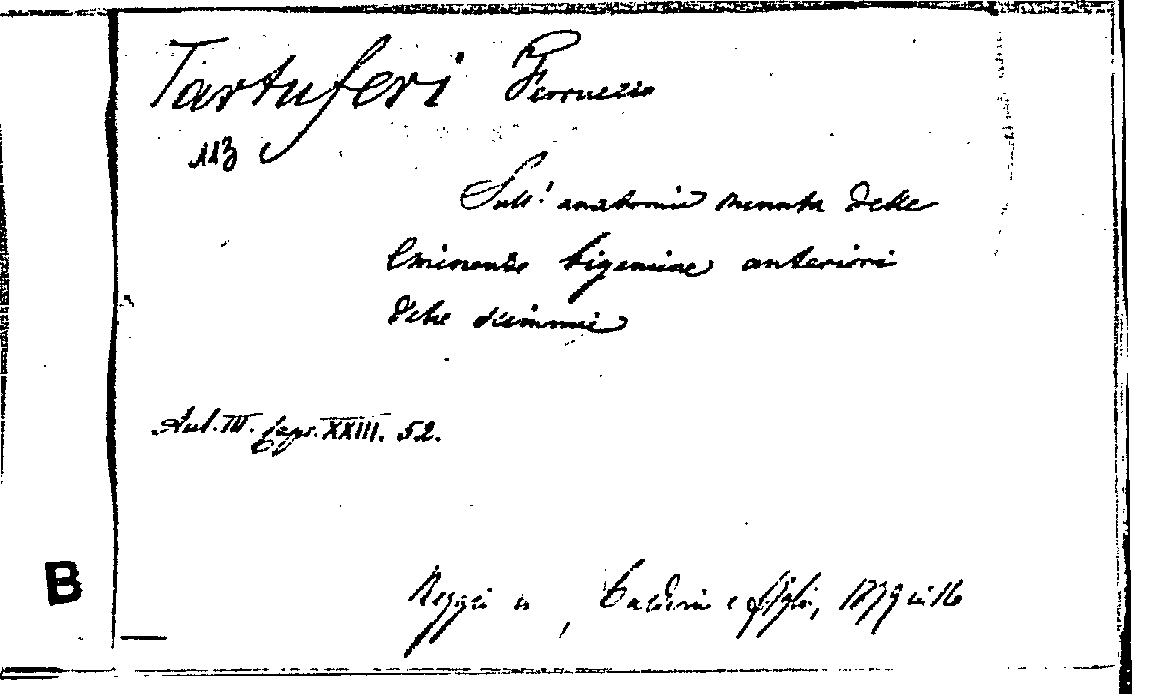 Tartuferi Ferruccio
113
Sull' anatomia minuta delle
Eminenze bigemine anteriori
delle scimmie
Aul. III. caps. XXIII. 52.
B
Reggio E, Calderini e figli, 1879 in 16